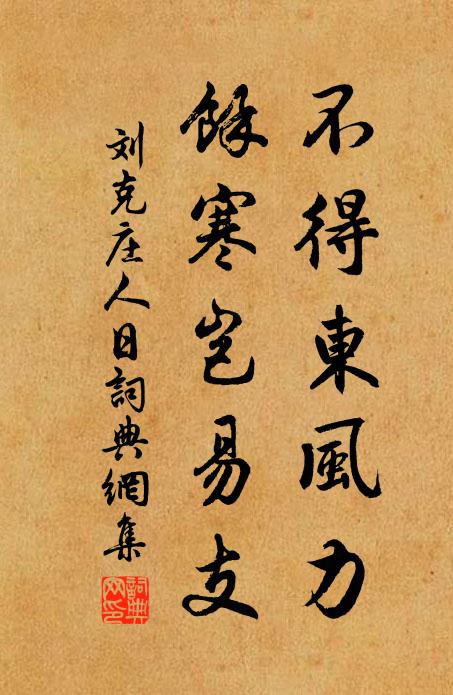 不得東風力
餘寒豈易支
刘克庄人日詞典網集
詞典网印